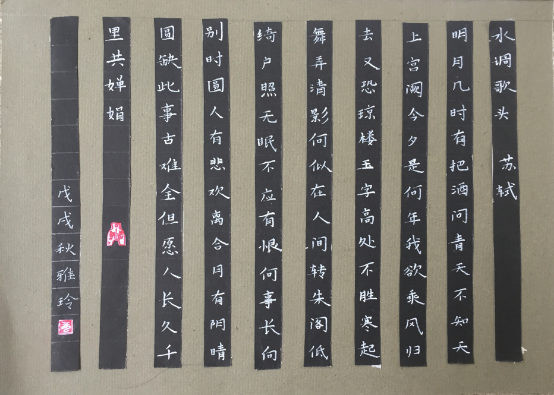 水调歌头 苏轼
明月几时有把酒问青天不知天
上宫阙今夕是何年我欲乘风归
去又恐琼楼玉宇高处不胜寒起
舞弄清影何似在人间转朱阁低
绮户照无眠不应有恨何事长向
别时圆人有悲欢离合月有阴晴
圆缺此事古难全但愿人长久千
里共婵娟
戊戌秋雅玲